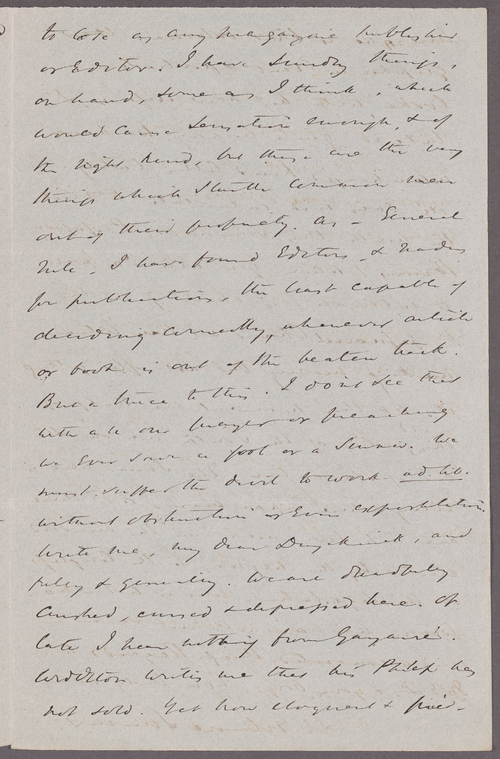 to cote as any magazine publisher
or Editor. I have sundry things,
on hand, some as I think, which
would cause sensation enough, & of
the right kind, but these are the very
things which startle common men
out of their propriety. As a General
rule, I have found Editors, & readers
for publications, the least capable of
deciding correctly, whenever article
or book is out of the beaten track.
But a truce to this. I don't see that
with all our prayer or preaching
we ever save a fool or a Sinner. We
must suffer the devil to work ad. lib.
without obstruction or even expostulation.
Write me, my dear Duyckinck, and
fully & genially. We are dreadfully
crushed, cursed & depressed here. Of
late I hear nothing from Gayarré.
writes me that his Philip has
not sold. Yet how eloquent &